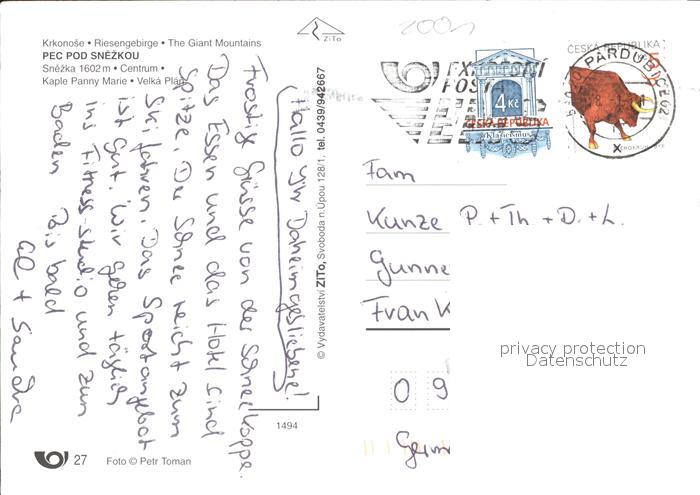 2001
Krkonoše • Riesengebirge • The Giant Mountains
PEC POD SNĚŽKOU
Sněžka 1602 m • Centrum •
Kaple Panny Marie • Velká Pláň
ZiTo
© Vydavatelství ZiTo, Svoboda n.Úpou 128/1, tel. 0439/942667
Hallo ihr Daheimgebliebene!
Frostig Grüsse von der Schneekoppe.
Das Essen und das Hotel sind
Spitze. Der Schnee reicht zum
Ski fahren. Das Sportangebot
ist gut. Wir gehen täglich
ins Fitness-studio und zum
Baden Bis bald
+ Sandra
1494
27 Foto © Petr Toman
POST
4 Kč
ČESKÁ REPUBLIKA
Klasicismus
ČESKÁ REPUBLIKA
PARDUBICE 02
Fam
Kunze P. + Th. + D. + L.
Gunne
Fran K
0 9
Germ
privacy protection
Datenschutz